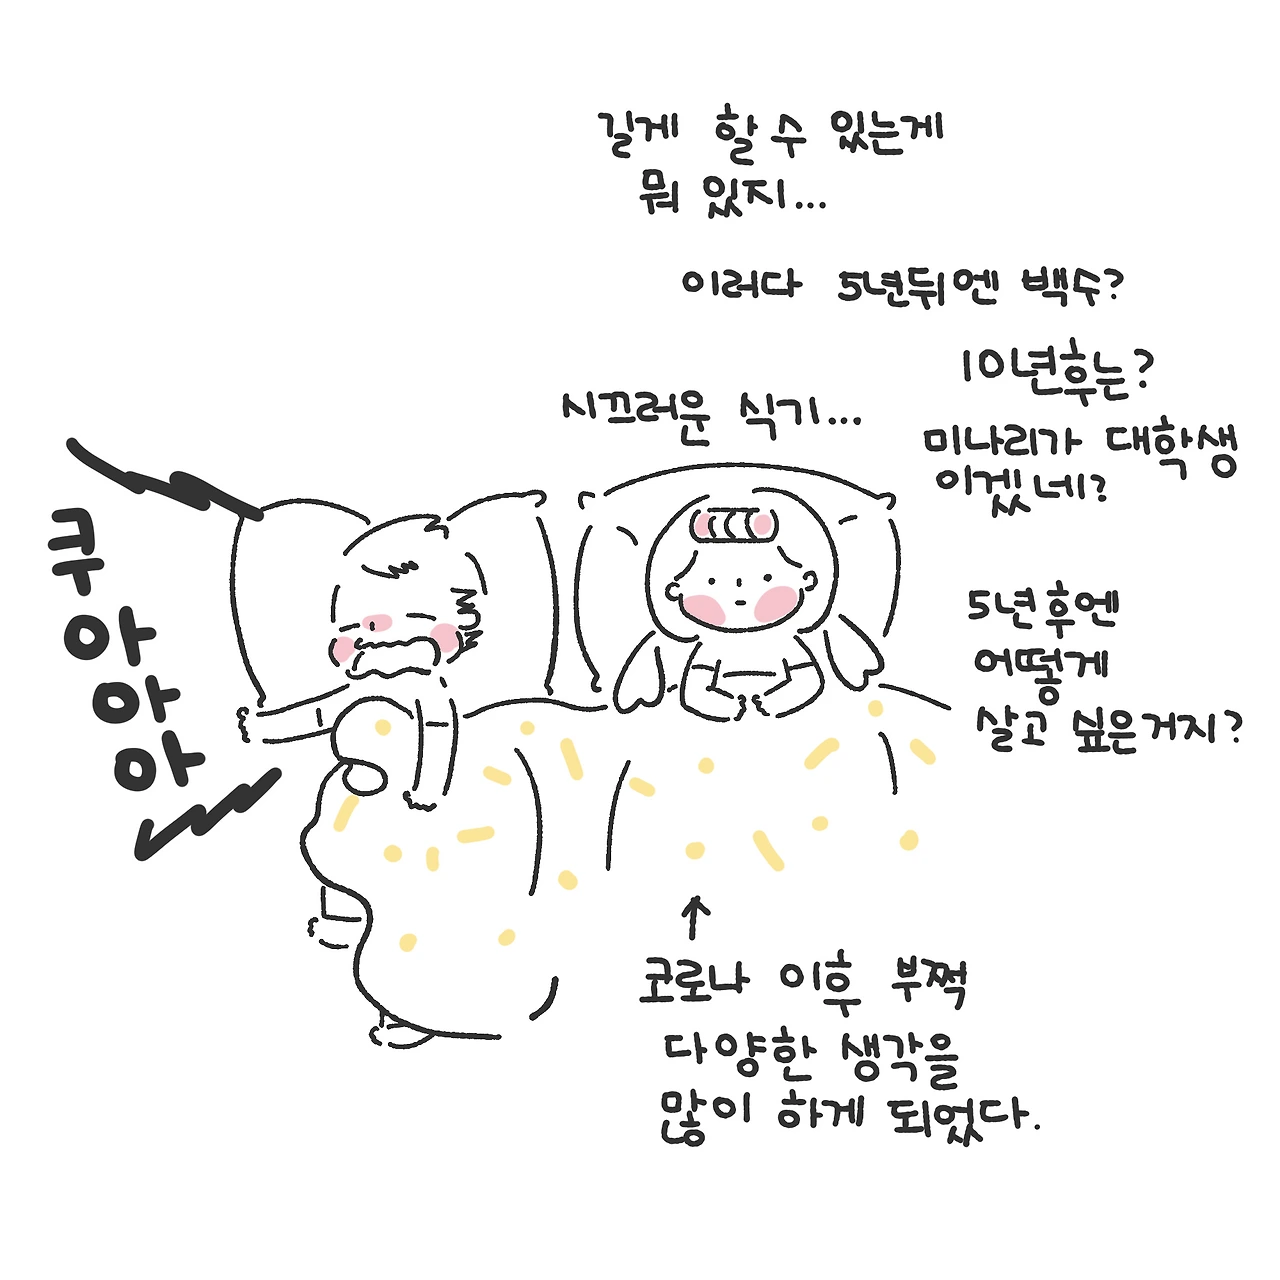 길게 할 수 있는게
뭐 있지...
이러다 5년뒤엔 백수?
10년후는?
시끄러운 식기...
미나리가 대학생
이겠네?
쿠
아
아
아
5년후엔
어떻게
살고 싶은거지?
↑
코로나 이후 부쩍
다양한 생각을
많이 하게 되었다.